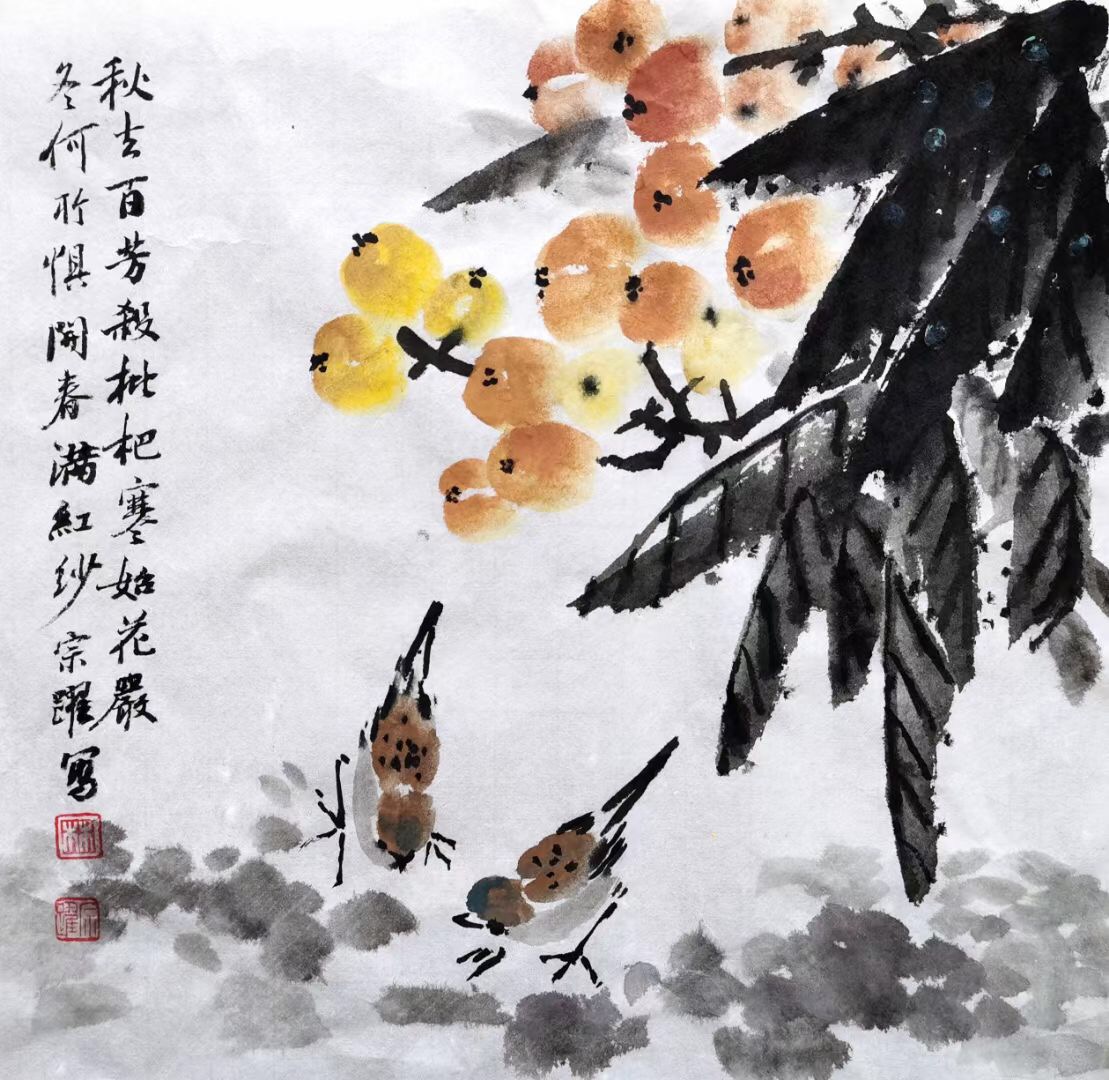 秋去百芳殺枇杷寒始花嚴
冬何所懼開春满紅紗宗躍寫